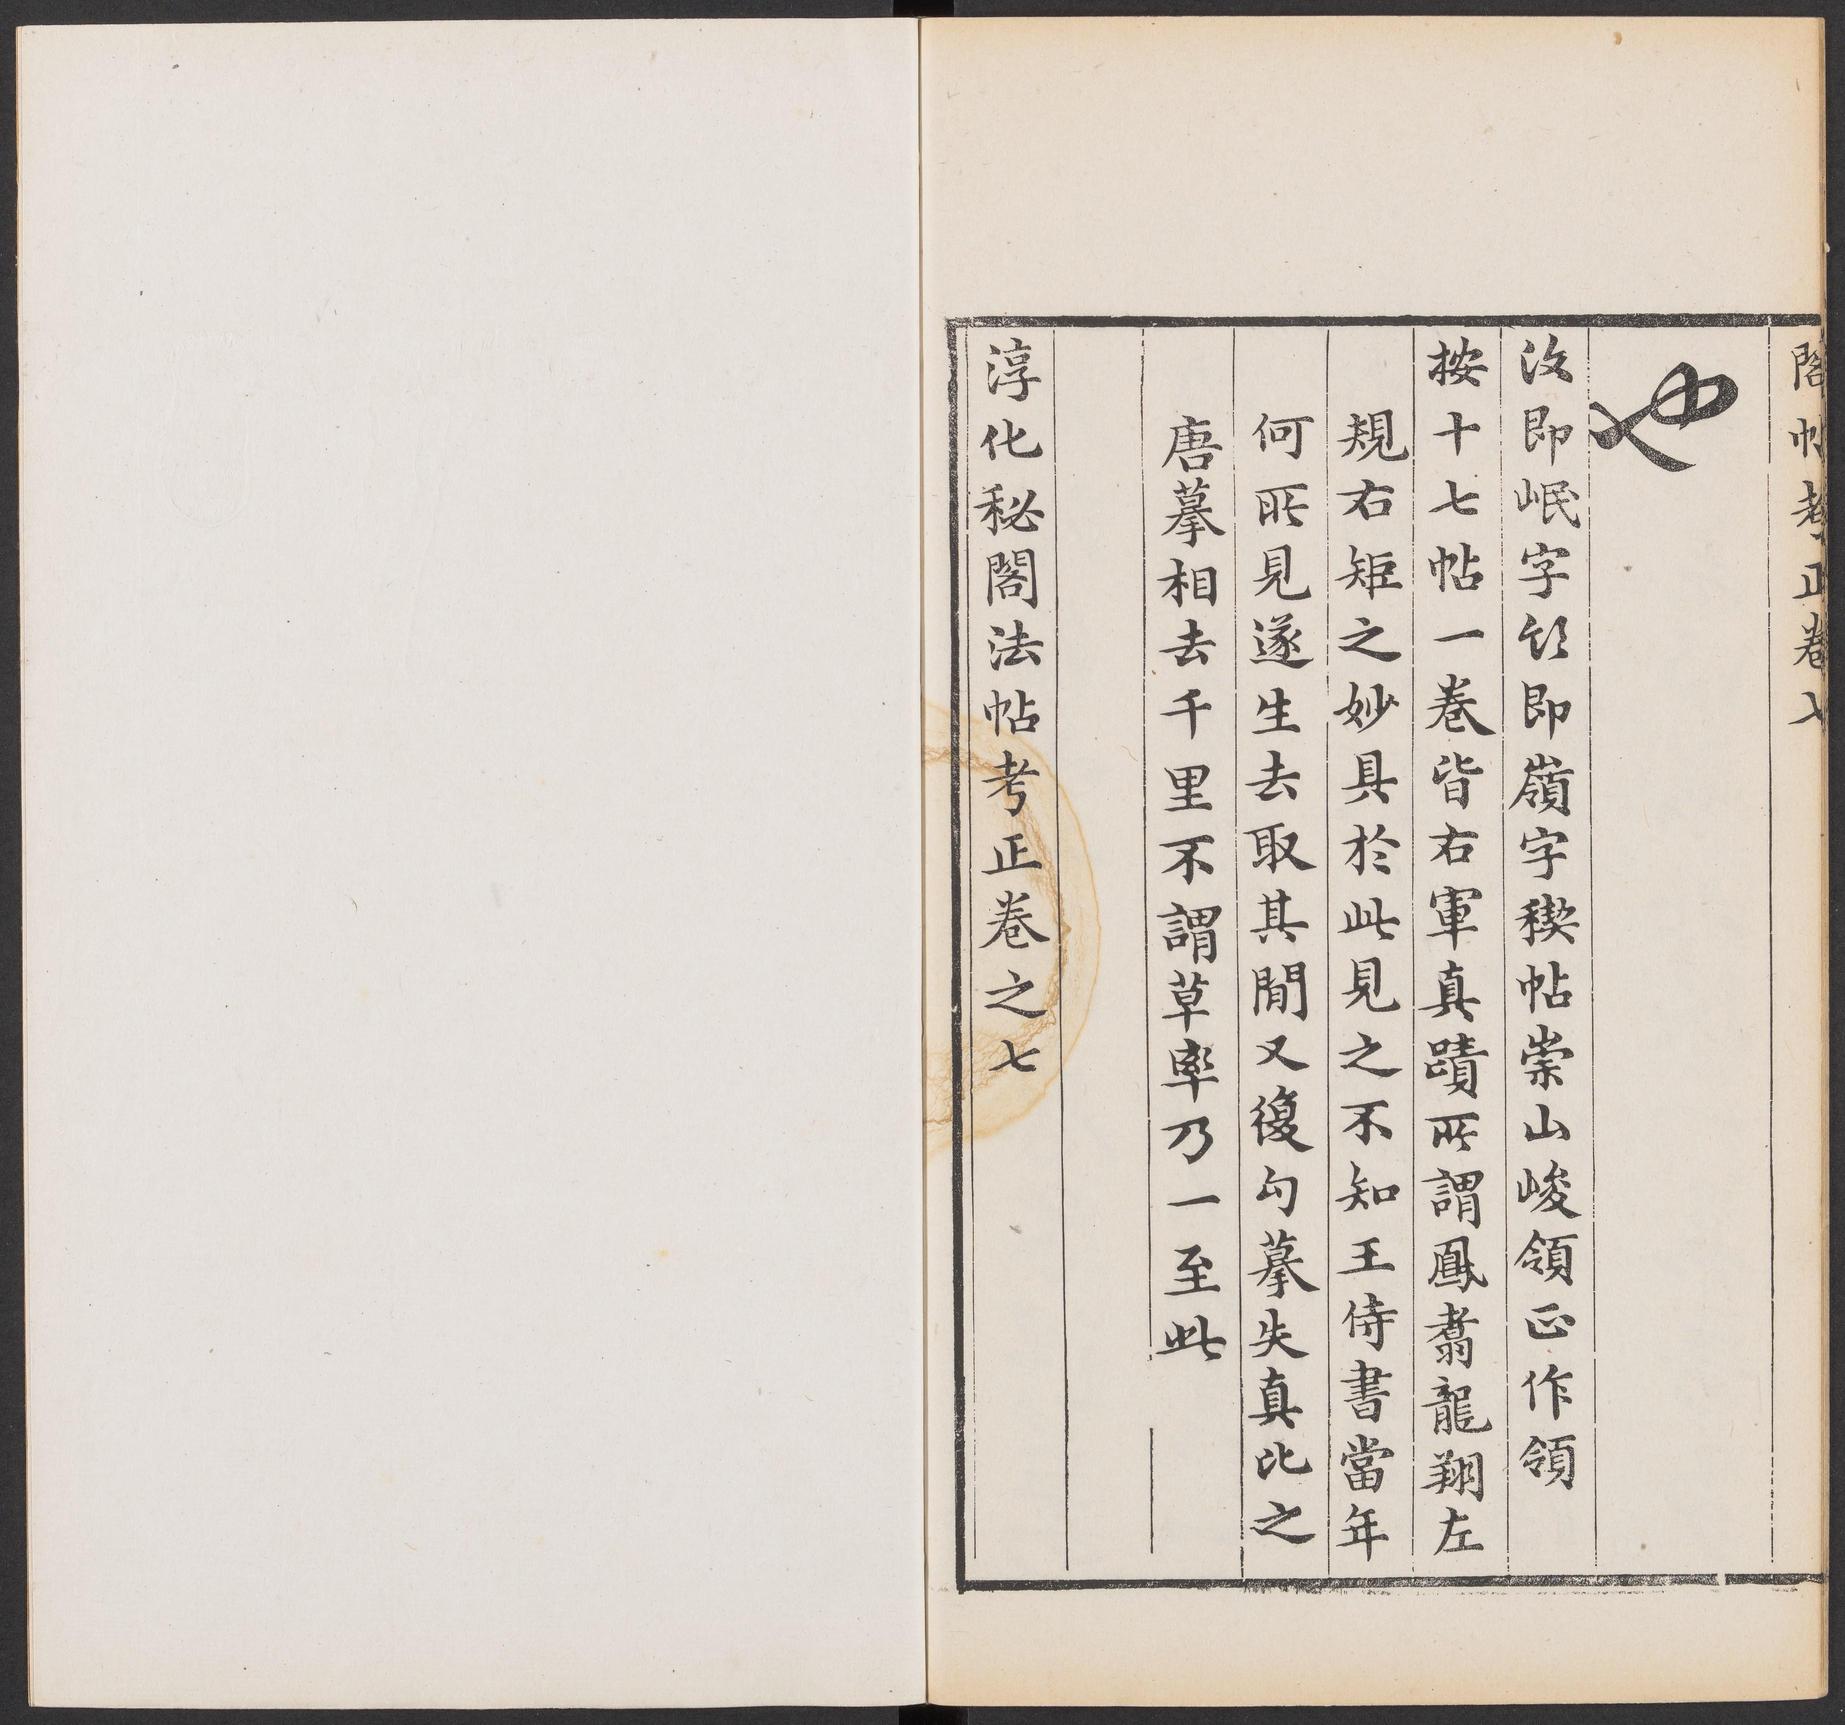 閣帖考正卷七
也
汶即岷字领即嶺字稧帖崇山峻領正作領
按十七帖一卷皆右軍真蹟所謂鳳翥龍翔左
規右矩之妙具於此見之不知王侍書當年
何所見遂生去取其閒又復勾摹失真比之
唐摹相去千里不謂草率乃一至此
淳化秘閣法帖考正卷之七